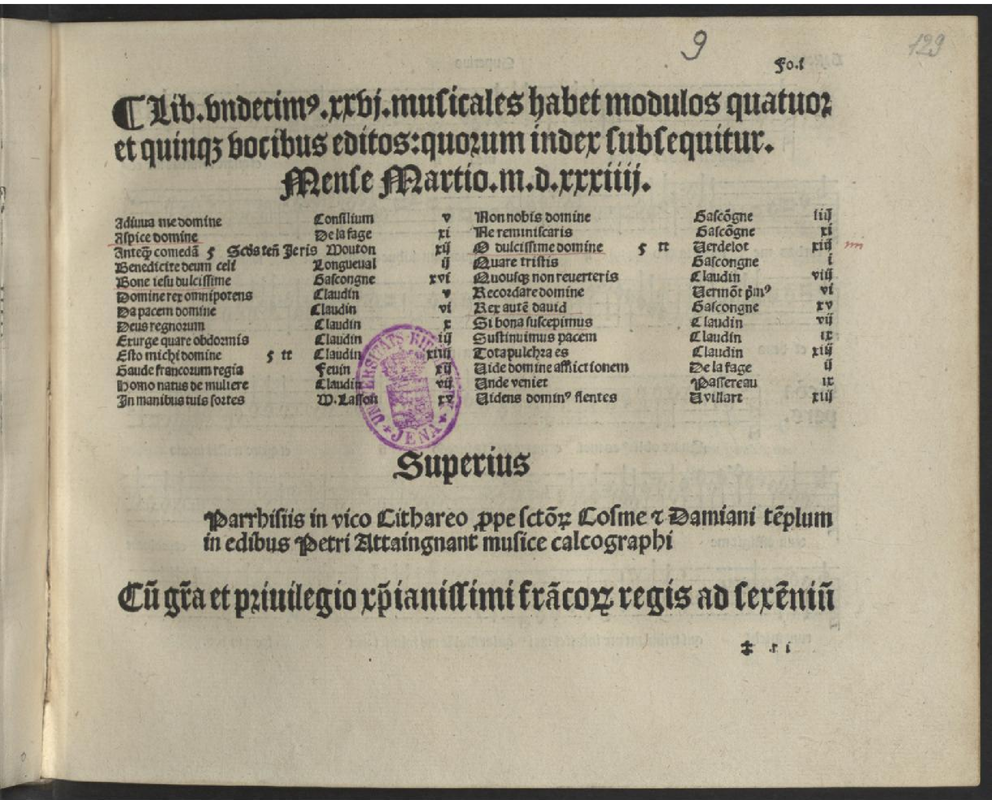 9
129
Fo.i
¶ Lib. vndecimꝰ. xxvj. musicales habet modulos quatuor
et quinqꝫ vocibus editos: quorum index subsequitur.
Mense Martio. m. d. xxxiiij.
Adiuua me domine Consilium v
Aspice domine De la fage xi
Anteqꝫ comedā 5 Scds teñ Jeris Mouton xij
Benedicite deum celi Longueual ij
Bone iesu dulcissime Gascongne xvi
Domine rex omnipotens Claudin v
Da pacem domine Claudin vi
Deus regnorum Claudin x
Exurge quare obdormis Claudin iij
Esto michi domine 5 tt Claudin xiiij
Gaude francorum regia Feuin xij
Homo natus de muliere Claudin vij
In manibus tuis sortes M. Lasson xv
Non nobis domine Gascōgne iiij
Ne reminiscaris Gascōgne xi
O dulcissime domine 5 tt Verdelot xiij
Quare tristis Gascongne i
Quousqꝫ non reuerteris Claudin viij
Recordare domine Vermōt p̄mꝰ vi
Rex autē dauid Gascongne xv
Si bona suscepimus Claudin vij
Sustinuimus pacem Claudin ix
Tota pulchra es Claudin xiij
Vide domine afflictionem De la fage ij
Vnde veniet Passereau ix
Videns dominꝰ flentes Vvillart xiij
JENA
Superius
Parrhisiis in vico Cithareo ꝓpe sctōꝝ Cosme ⁊ Damiani tēplum
in edibus Petri Attaingnant musice calcographi
Cū gr̄a et priuilegio xp̄ianissimi frācoꝝ regis ad sexēniū
‡ r i